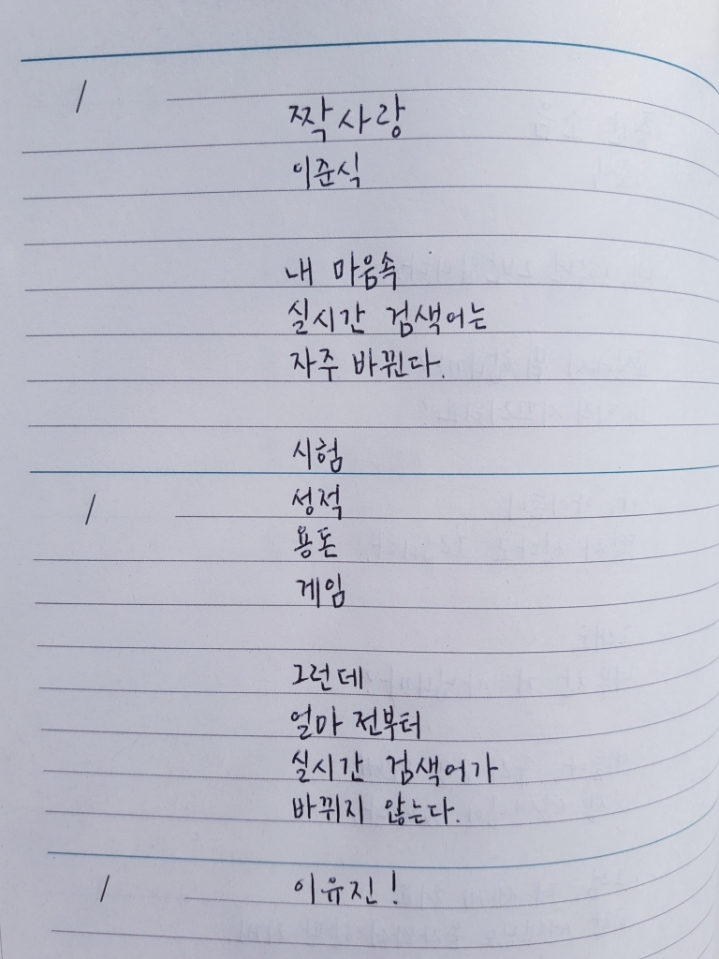 짝사랑
이준식
내 마음속
실시간 검색어는
자주 바뀐다.
시험
성적
용돈
게임
그런데
얼마 전부터
실시간 검색어가
바뀌지 않는다.
이유진!